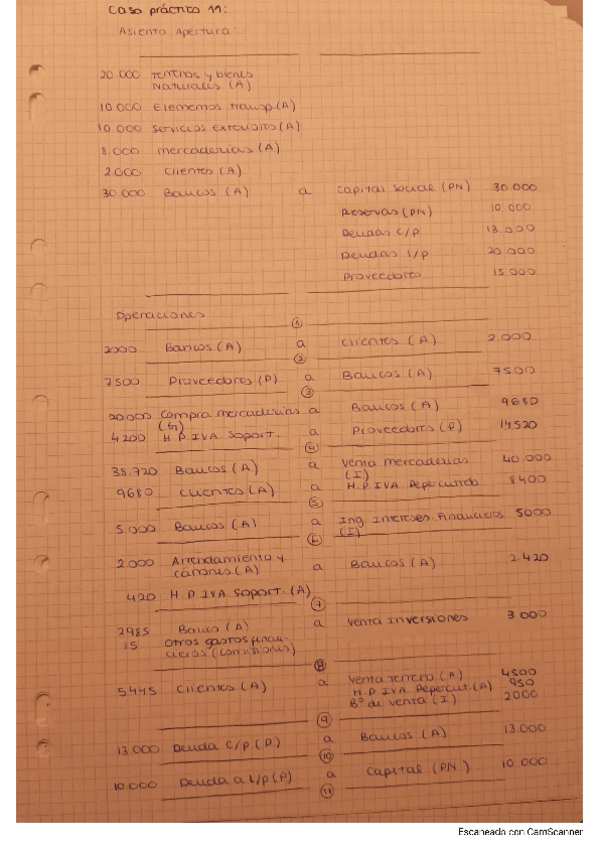 Caso práctico 11:
Asiento Apertura:
20.000 Terrenos y bienes
Naturales (A)
10.000 Elementos transp. (A)
10.000 Servicios Exteriores (A)
8.000 mercaderías (A)
2.000 Clientes (A)
30.000 Bancos (A) a Capital Social (PN) 30.000
Reservas (PN) 10.000
Deudas C/p 13.000
Deudas l/p 20.000
Proveedores 15.000
Operaciones
1
2000 Bancos (A) a Clientes (A) 2.000
2
7500 Proveedores (P) a Bancos (A) 7500
3
20.000 Compra mercaderías a Bancos (A) 9680
(G)
4200 H.P IVA Soport. a Proveedores (P) 14520
4
38.720 Bancos (A) a Venta mercaderías 40.000
(I)
9680 Clientes (A) a H.P IVA Repercutido 8400
5
5.000 Bancos (A) a Ing Intereses Financieros 5000
(I)
6
2.000 Arrendamiento y
cánones (A) a Bancos (A) 2420
420 H.P IVA Soport. (A)
7
2985 Banco (A) a Venta Inversiones 3000
15 Otros gastos finan-
cieros (comisiones)
8
5445 Clientes (A) a Venta Terreno (A) 4500
H.P IVA Repercut. (A) 950
Bº de venta (I) 2000
9
13.000 Deuda C/p (P) a Bancos (A) 13.000
10
10.000 Deuda a l/p (P) a Capital (PN) 10.000
11
Escaneado con CamScanner